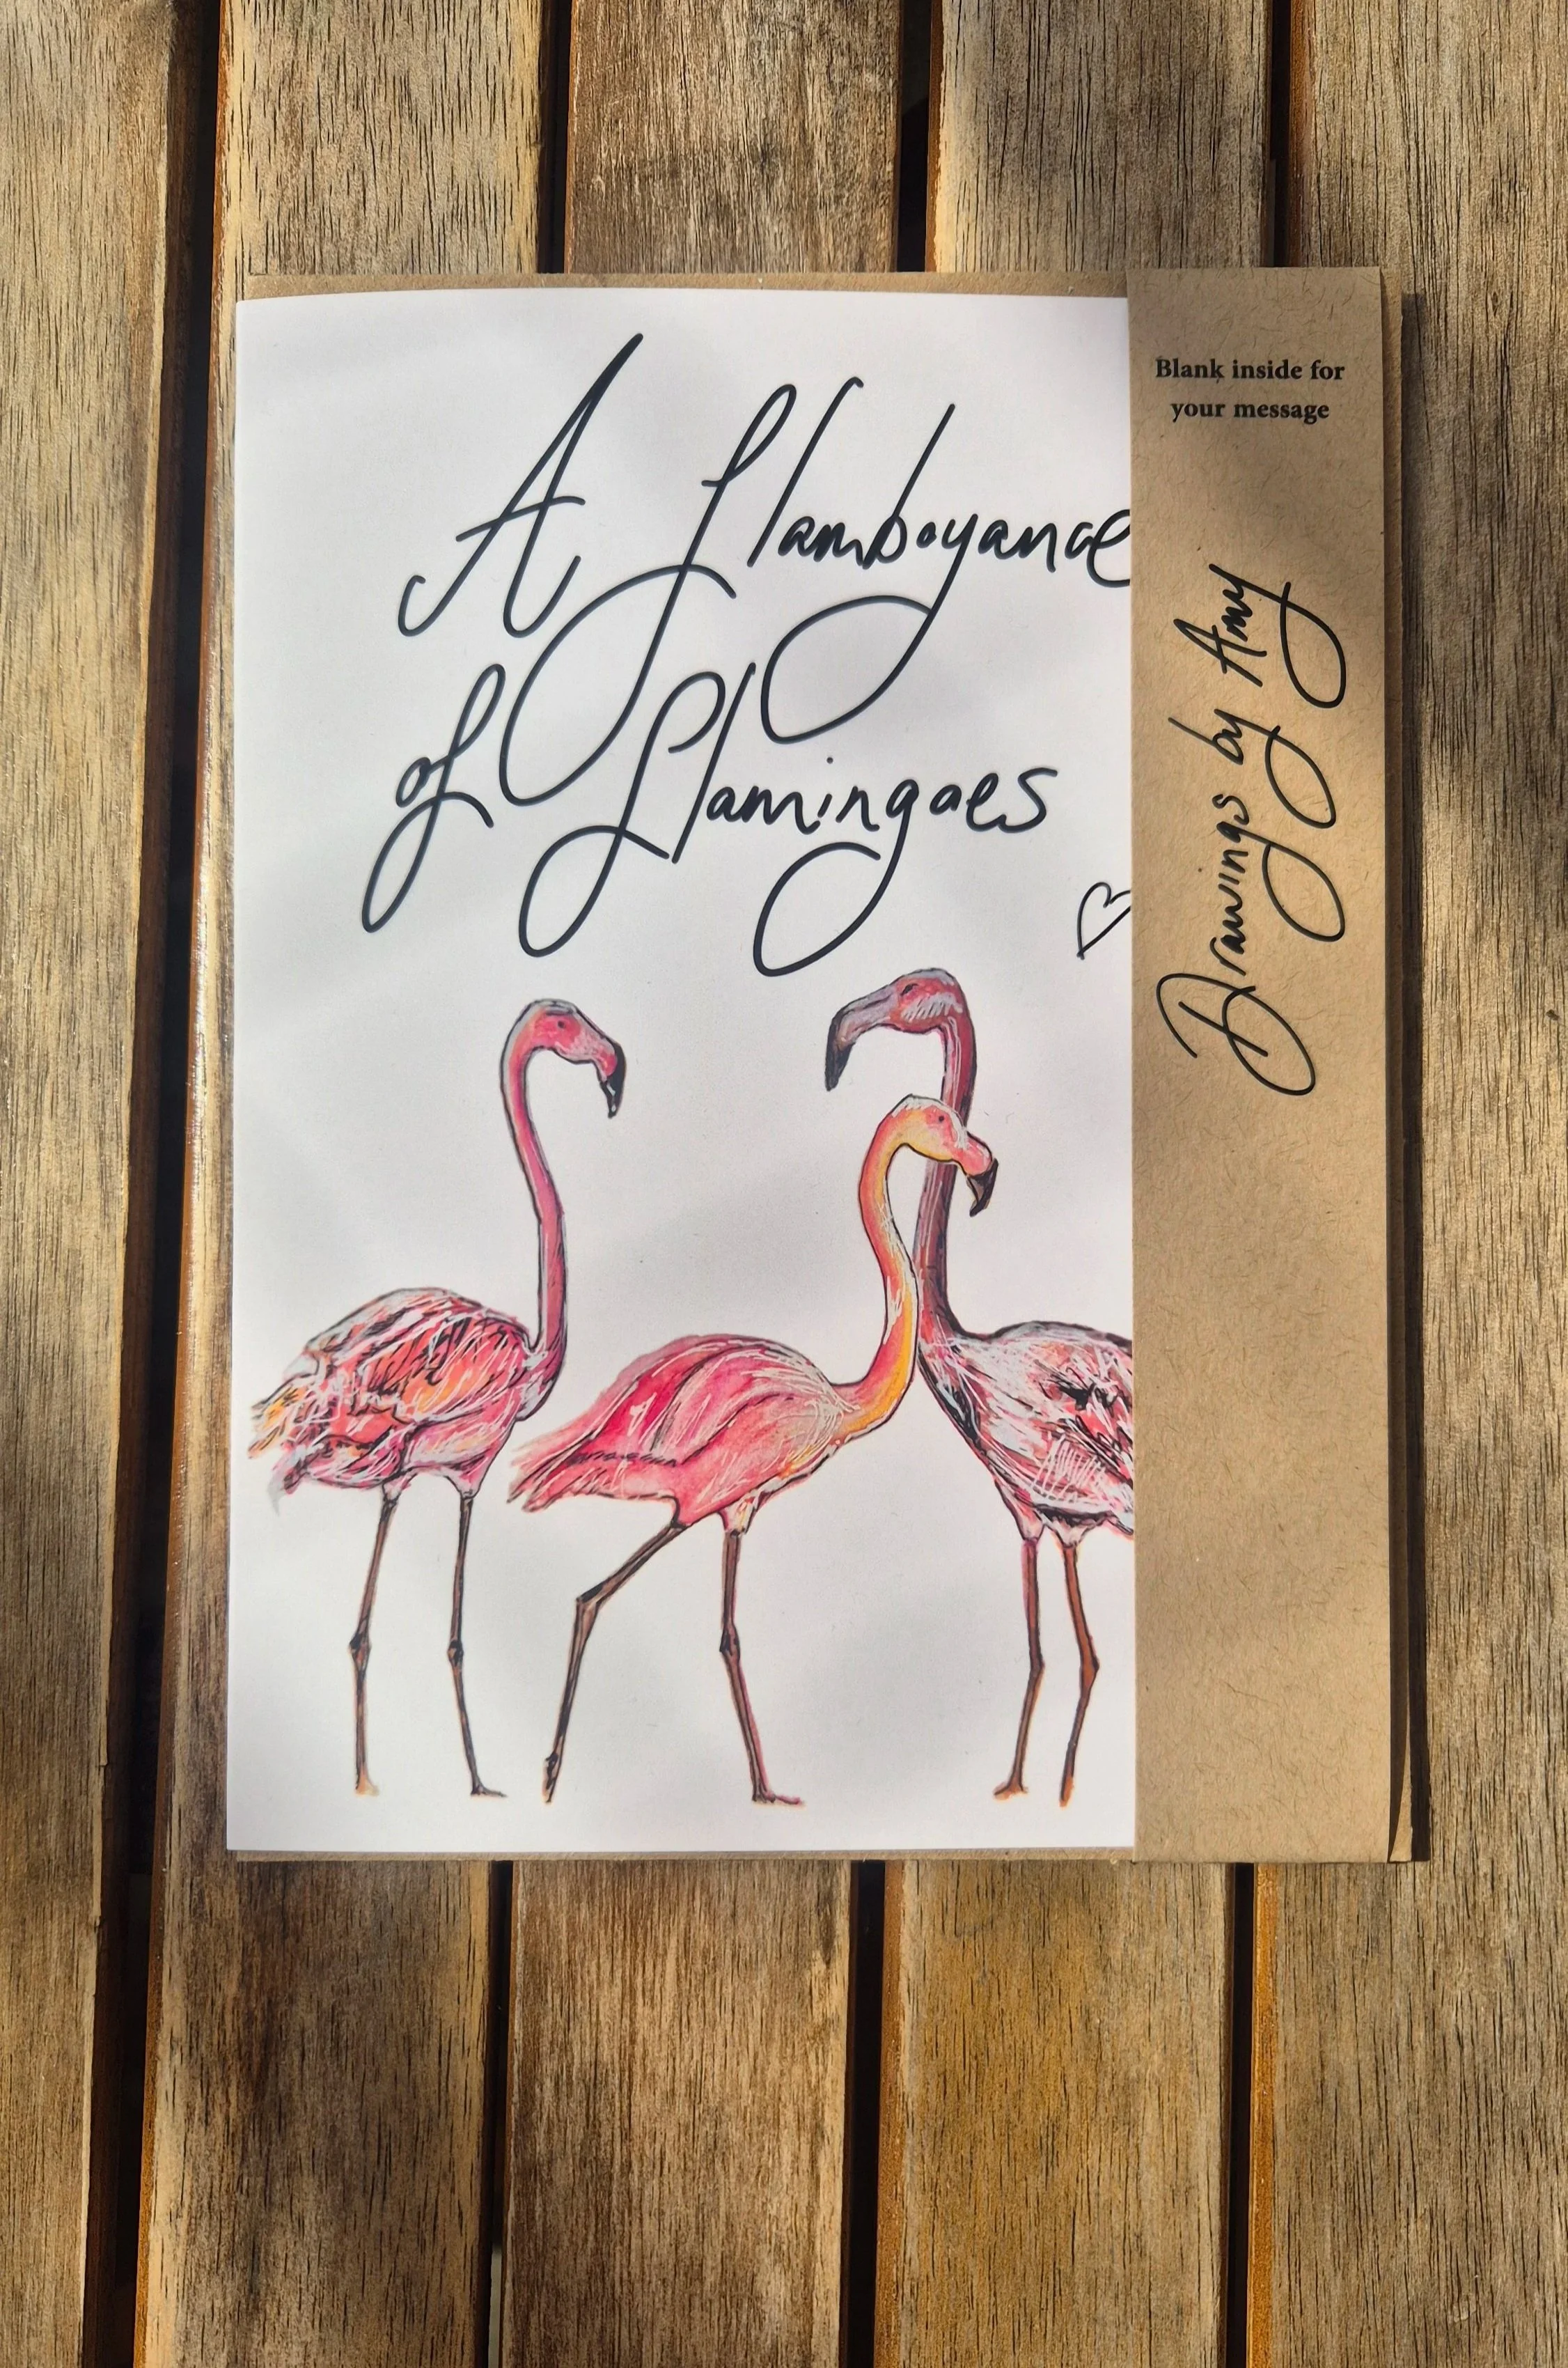 A flamboyance
of flamingoes
Blank inside for
your message
Drawings by Amy